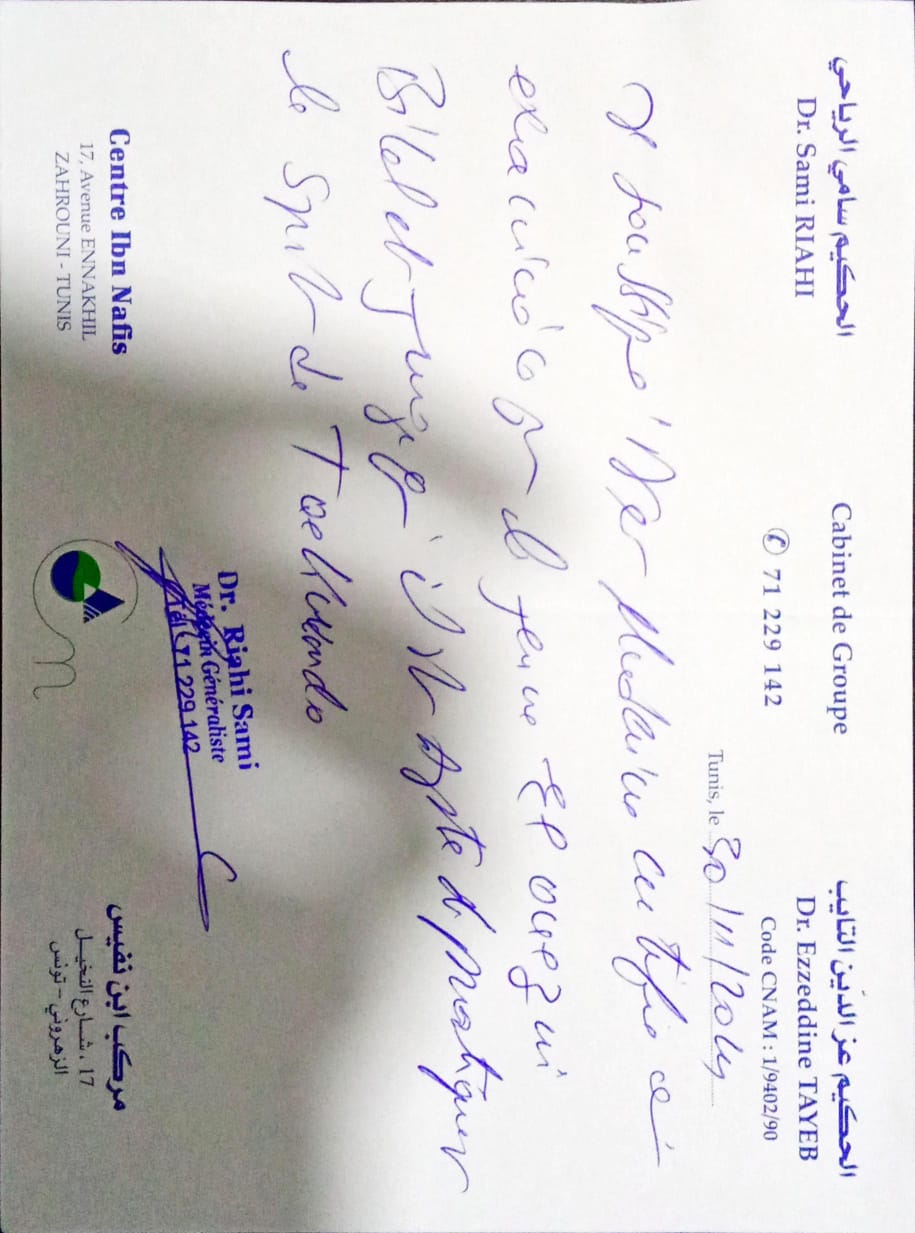 الحكيم سامي الرياحي
Dr. Sami RIAHI
Cabinet de Groupe
✆ 71 229 142
الحكيم عز الدّين التايب
Dr. Ezzeddine TAYEB
Code CNAM : 1/9402/90
Tunis, le 30/11/20
Je soussigné Dr en Médecine certifie à
examiné ce jour le jeune
Bilel et juge qu'il est apte de pratiquer
le Sport de Taekwondo
Dr. Riahi Sami
Médecin Généraliste
Tél : 71 229 142
Centre Ibn Nafis
17, Avenue ENNAKHIL
ZAHROUNI - TUNIS
مركب ابن نفيس
17 ، شارع النخيل
الزهروني - تونس